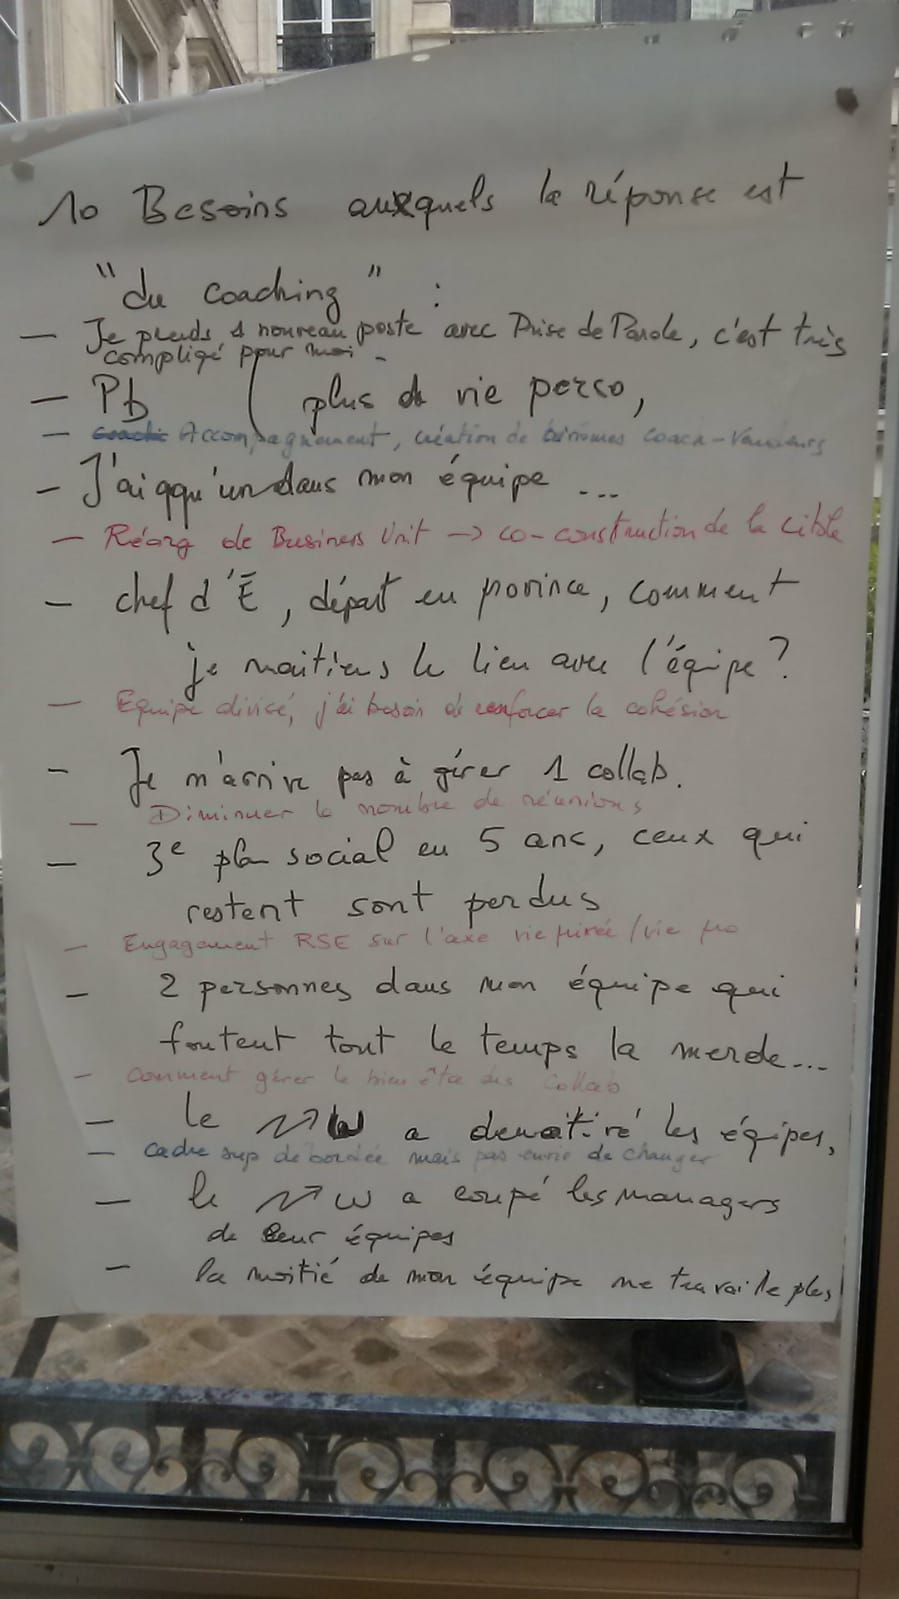 10 Besoins auxquels la réponse est
"du coaching" :
— Je prends 1 nouveau poste avec Prise de Parole, c'est très
compliqé pour moi -
— Pb ( plus de vie perso,
— Accompagnement, création de binômes coach-Vendeurs
— J'ai qqu'un dans mon équipe ...
— Réorg de Business Unit → co-construction de la cible
— chef d'E, départ en province, comment
je maitiens le lien avec l'équipe ?
— Equipe divisé, j'ai besoin de renforcer la cohésion
— Je n'arrive pas à gérer 1 collab.
— Diminuer le nombre de réunions
— 3e plan social en 5 ans, ceux qui
restent sont perdus
— Engagement RSE sur l'axe vie privée / vie pro
— 2 personnes dans mon équipe qui
foutent tout le temps la merde...
— Comment gérer le bien être des collab
— le a les équipes,
— Cadre sup débordée mais pas envie de changer
— le a coupé les managers
de leur équipes
— la moitié de mon équipe ne travaille plus